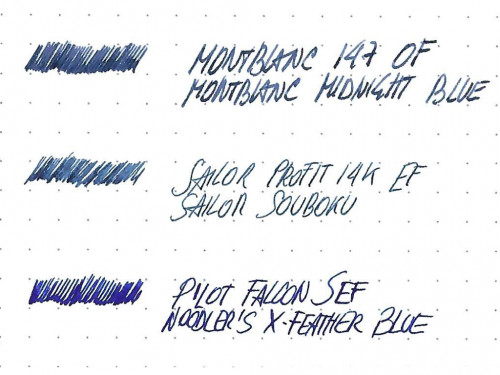 MONTBLANC 147 OF
MONTBLANC MIDNIGHT BLUE
SAILOR PROFIT 14K EF
SAILOR SOUBOKU
PILOT FALCON SEF
NOODLER'S X-FEATHER BLUE